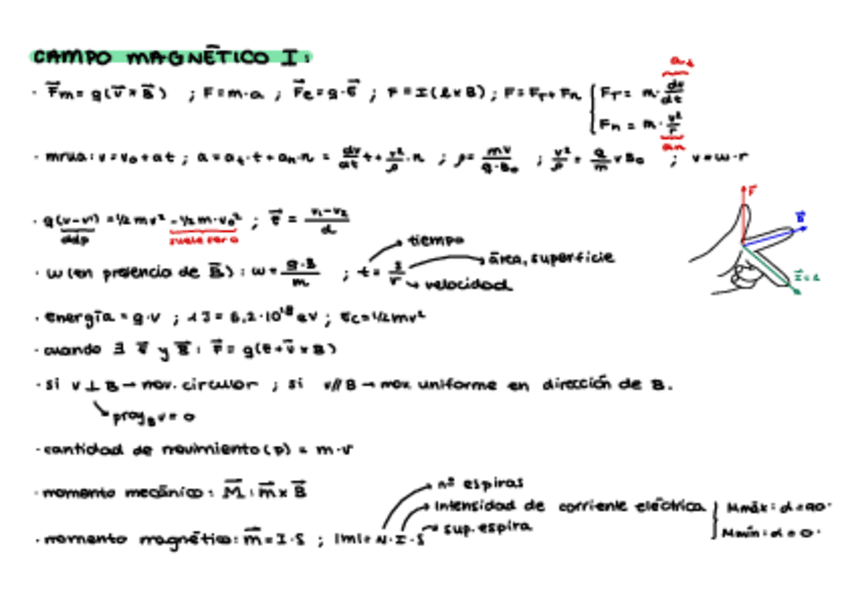 CAMPO MAGNÉTICO I:
· F⃗m = q(v⃗ × B⃗) ; F = m·a ; F⃗e = q·E⃗ ; F = I(l × B) ; F = Fτ + Fn { Fτ = m·dv/dt at
Fn = m·v²/r an
· mrua: v = v₀ + at ; a = at·t + an·n = dv/dt t + v²/ρ·n ; ρ = mv/q·B₀ ; v²/ρ = q/m vB₀ ; v = w·r
F⃗
B⃗
· q(v-v') = 1/2 mv² - 1/2 m·v₀² ; E⃗ = v₁-v₂/d
ddp suele ser 0
tiempo
· w (en presencia de B⃗): w = q·B/m ; t = s/v área, superficie
velocidad
· energía = q·v ; 1J = 6,2·10¹⁸ eV ; Ec = 1/2 mv²
· cuando ∃ E⃗ y B⃗: F⃗ = q(E + v⃗ × B)
· si v ⊥ B → mov. circular ; si v // B → mov. uniforme en dirección de B.
proy_B v = 0
· cantidad de movimiento (p) = m·v
· momento mecánico: M⃗: m⃗ × B⃗
nº espiras
Intensidad de corriente eléctrica
sup. espira
· momento magnético: m⃗ = I·S ; |m| = N·I·S { Mmáx: α = 90°
Mmín: α = 0°